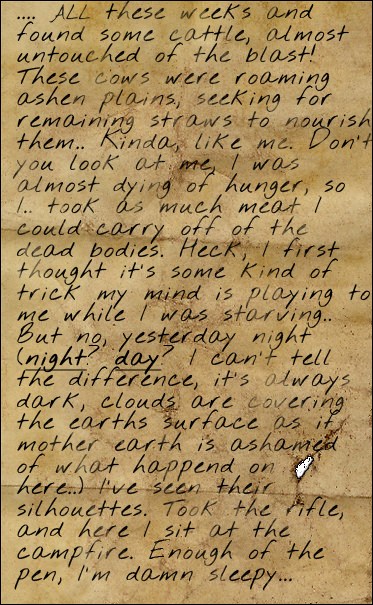 .... ALL these weeks and
found some cattle, almost
untouched of the blast!
These cows were roaming
ashen plains, seeking for
remaining straws to nourish
them.. Kinda, like me. Don't
you look at me, I was
almost dying of hunger, so
I.. took as much meat I
could carry off of the
dead bodies. Heck, I first
thought it's some kind of
trick my mind is playing to
me while I was starving..
But no, yesterday night
(night? day? I can't tell
the difference, it's always
dark, clouds are covering
the earths surface as if
mother earth is ashamed
of what happend on
here..) I've seen their
silhouettes. Took the rifle,
and here I sit at the
campfire. Enough of the
pen, I'm damn sleepy...